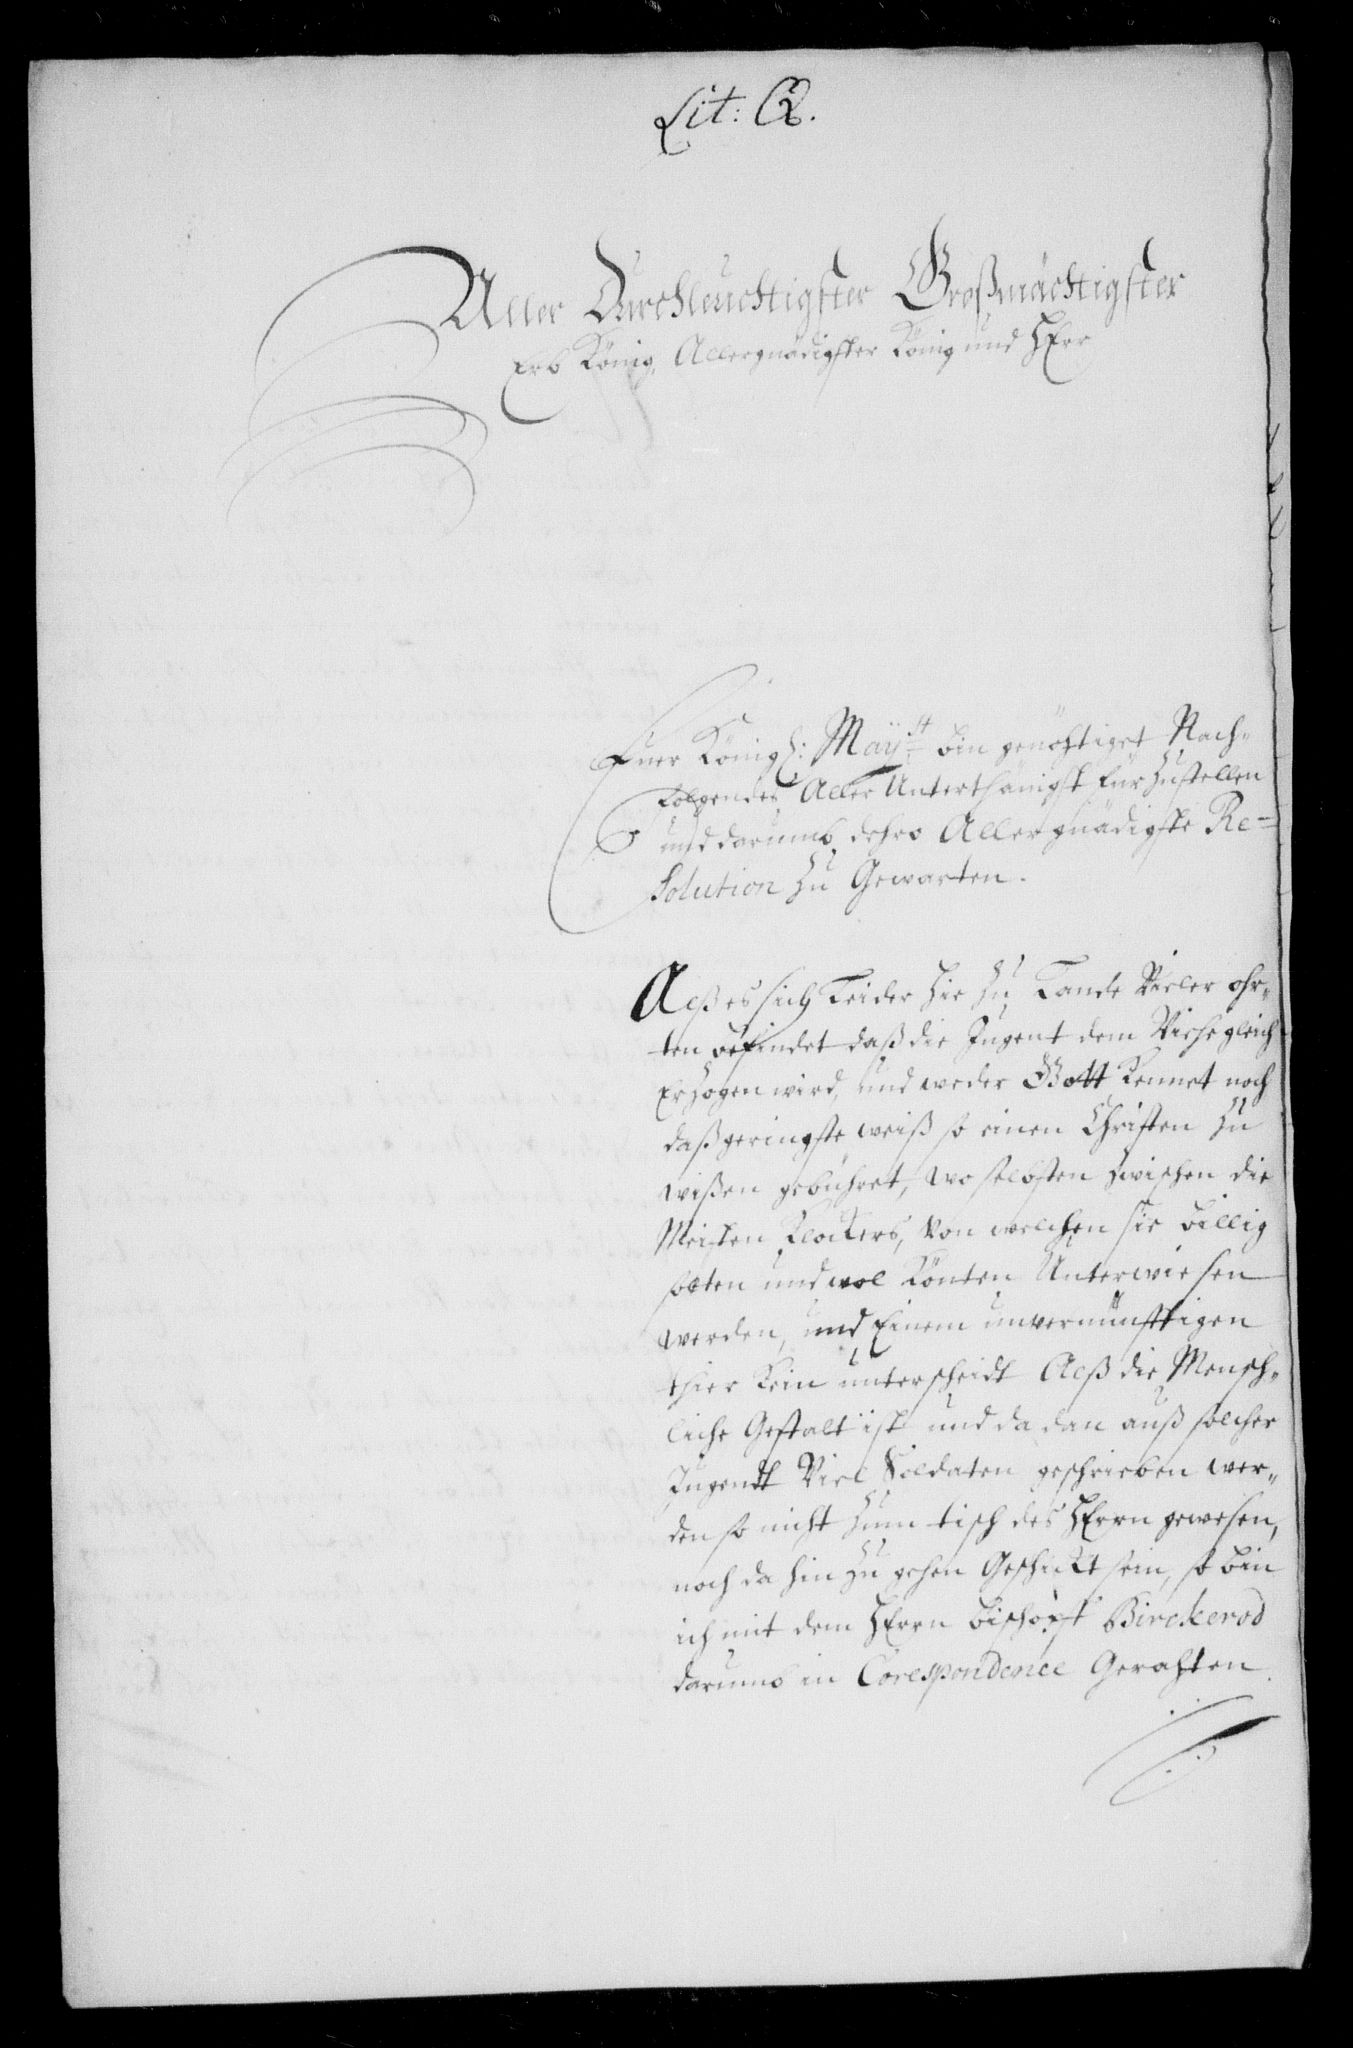 Lit: Q.
Aller Durchleuchtigster Großmächtigster
Erb König, Allergnädigster König und HErr
Euer Königl: Mayᵗᵗ bin genöhtiget Nach-
folgendes Aller Unterthänigst für zu stellen
und darumb dehro Aller gnädigste Re=
Solution zu Gewarten.
Alß es sich Leider hie zu Lande Vieler ohr-
ten befindet daß die Jugent dem Viehe gleich
Erzogen wird, und weder Gott kennet noch
daß geringste weiß so einen Christen zu
wißen gebühret, wo selbsten zwischen die
Meisten Klockers, von welchen sie billig
solten und wol könten Unterwiesen
werden, und Einem unvernünfftigen
thier kein unterscheidt Alß die Mensch-
liche Gestalt ist und da dan auß solcher
Jugendt Viel Soldaten geschrieben wer-
den so nicht zum tisch des HErrn gewesen,
noch da hin zu gehen Geschickt sein, so bin
ich mit dem HErrn bischopft Birckerod
darumb in Corespondence Gerahten